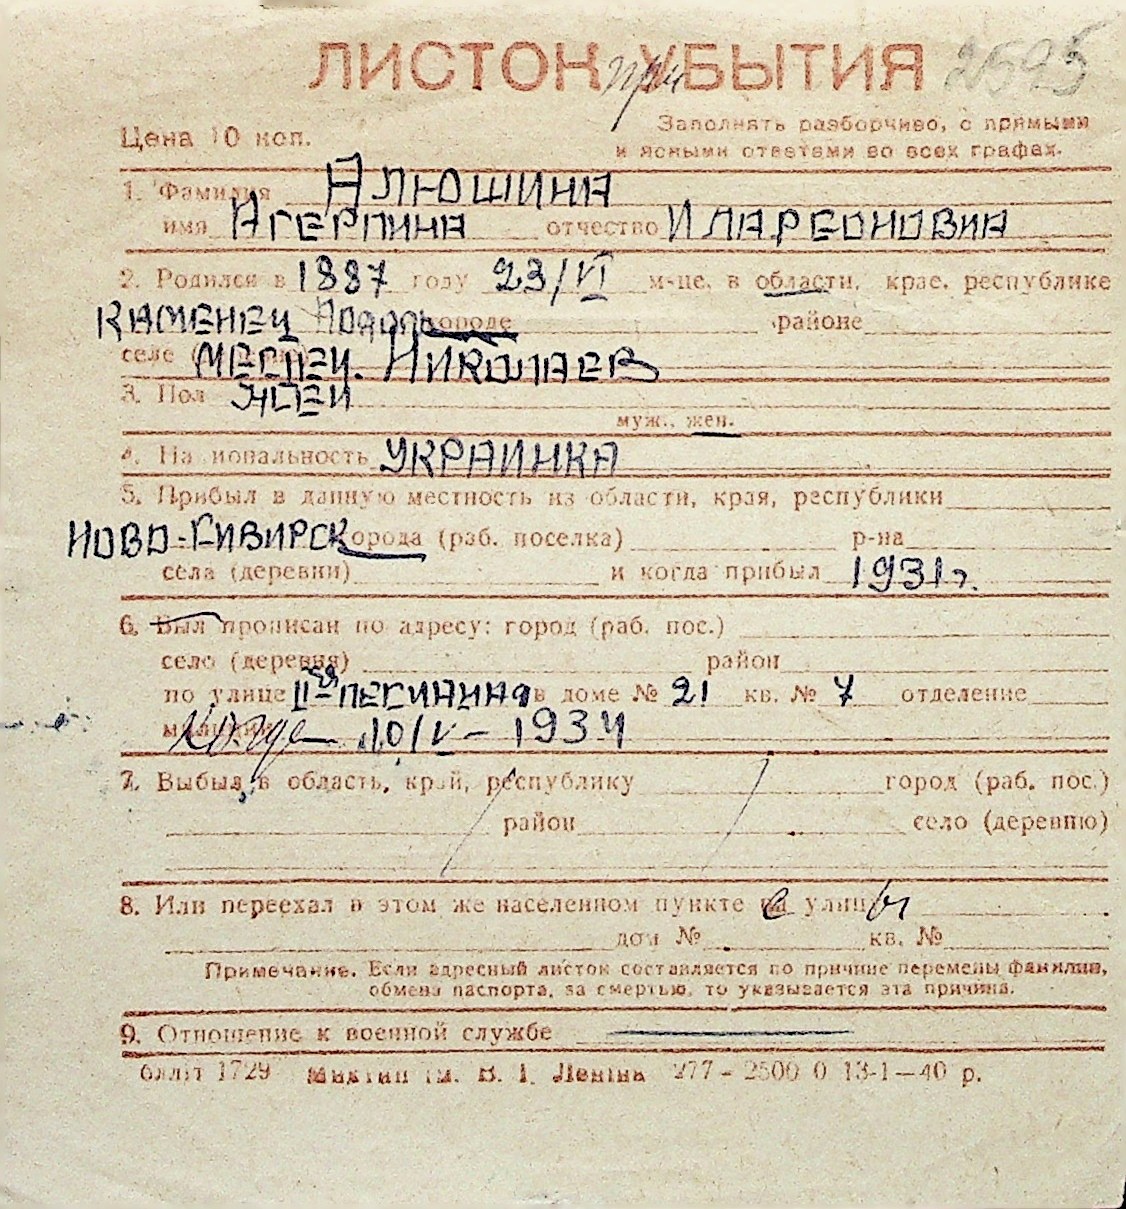 ЛИСТОК при УБЫТИЯ 2595
Цена 10 коп.
Заполнять разборчиво, с прямыми
и ясными ответами во всех графах.
1. Фамилия АЛЮШИНА
имя АГЕРПИНА отчество ИЛАРЕОНОВИА
2. Родился в 1887 году 23/VI м-це, в области, крае, республике
КАМЕНЕЦ Подоль городе районе
селе МЕСПЕЧ. НИКОЛАЕВ
3. Пол ЖЕН
муж., жен.
4. Национальность УКРАИНКА
5. Прибыл в данную местность из области, края, республики
НОВО-СИБИРСК города (раб. поселка) р-на
села (деревни) и когда прибыл 1931г.
6. Был прописан по адресу: город (раб. пос.)
село (деревня) район
по улице II-ая ПЕСЧАННАЯ в доме № 21 кв. № 7 отделение
милиции Когда 10/V – 1934
7. Выбыл в область, край, республику город (раб. пос.)
район село (деревню)
8. Или переехал в этом же населенном пункте с улицы
дом № кв. №
Примечание. Если адресный листок составляется по причине перемены фамилии,
обмена паспорта, за смертью, то указывается эта причина.
9. Отношение к военной службе
блліт 1729 Миктип ім. В. І. Леніна 277 – 2500 0 13-1—40 р.